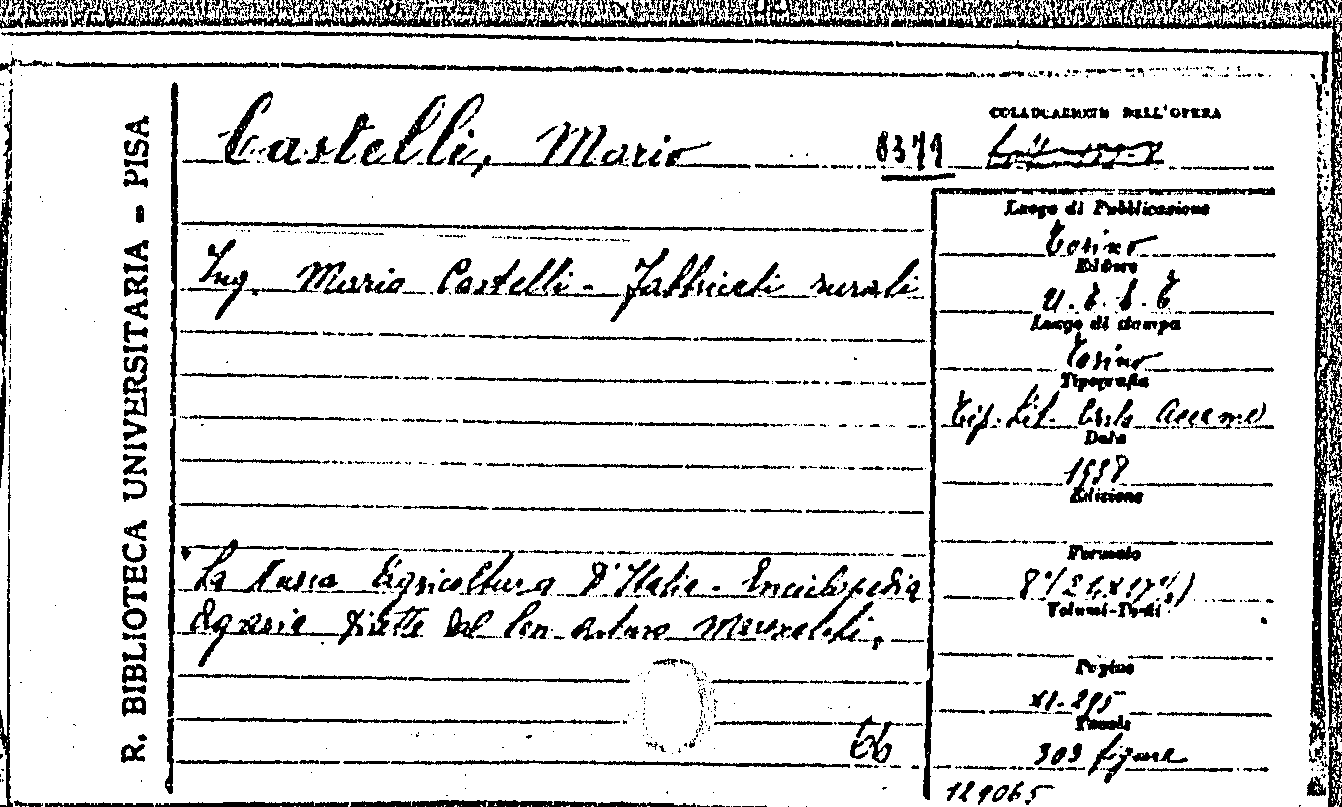 R. BIBLIOTECA UNIVERSITARIA - PISA
Castelli, Mario
8379
COLLOCAMENTO DELL'OPERA
Ing. Mario Castelli - Fabbricati rurali
La Nuova Agricoltura D'Italia - Enciclopedia
Agraria Diretta dal Sen. Arturo Marescalchi,
66
Luogo di Pubblicazione
Torino
Editore
U.T.E.T
Luogo di stampa
Torino
Tipografia
Tip. Lit. Carlo Accame
Data
1938
Edizione
Formato
Volumi-Tomi
Pagine
XI-295
Tavole
303 figure
129065